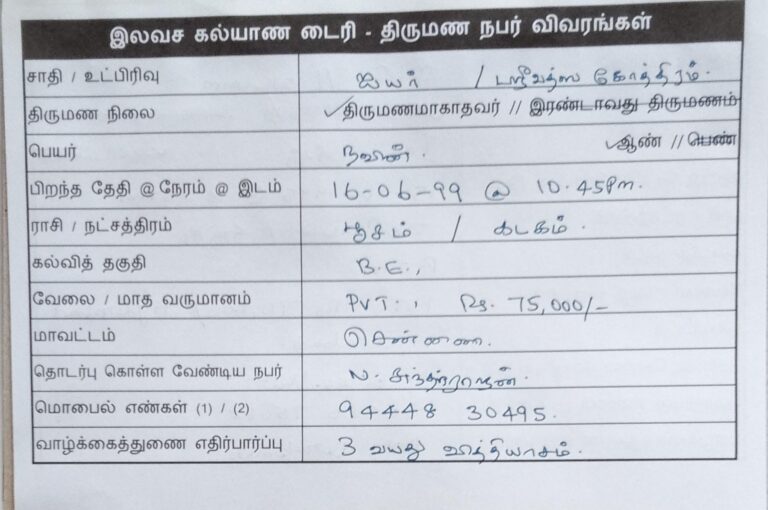 இலவச கல்யாண டைரி - திருமண நபர் விவரங்கள்
சாதி / உட்பிரிவு ஐயர் / ஸ்ரீவத்ஸ கோத்திரம்.
திருமண நிலை ✓திருமணமாகாதவர் // இரண்டாவது திருமணம்
பெயர் நவீன். ✓ஆண் // பெண்
பிறந்த தேதி @ நேரம் @ இடம் 16-06-99 @ 10.45Pm.
ராசி / நட்சத்திரம் பூசம் / கடகம்.
கல்வித் தகுதி B.E.,
வேலை / மாத வருமானம் PVT., Rs. 75,000/-
மாவட்டம் சென்னை.
தொடர்பு கொள்ள வேண்டிய நபர் N. சுந்தர்ராஜன்.
மொபைல் எண்கள் (1) / (2) 94448 30495.
வாழ்க்கைத்துணை எதிர்பார்ப்பு 3 வயது வித்தியாசம்.